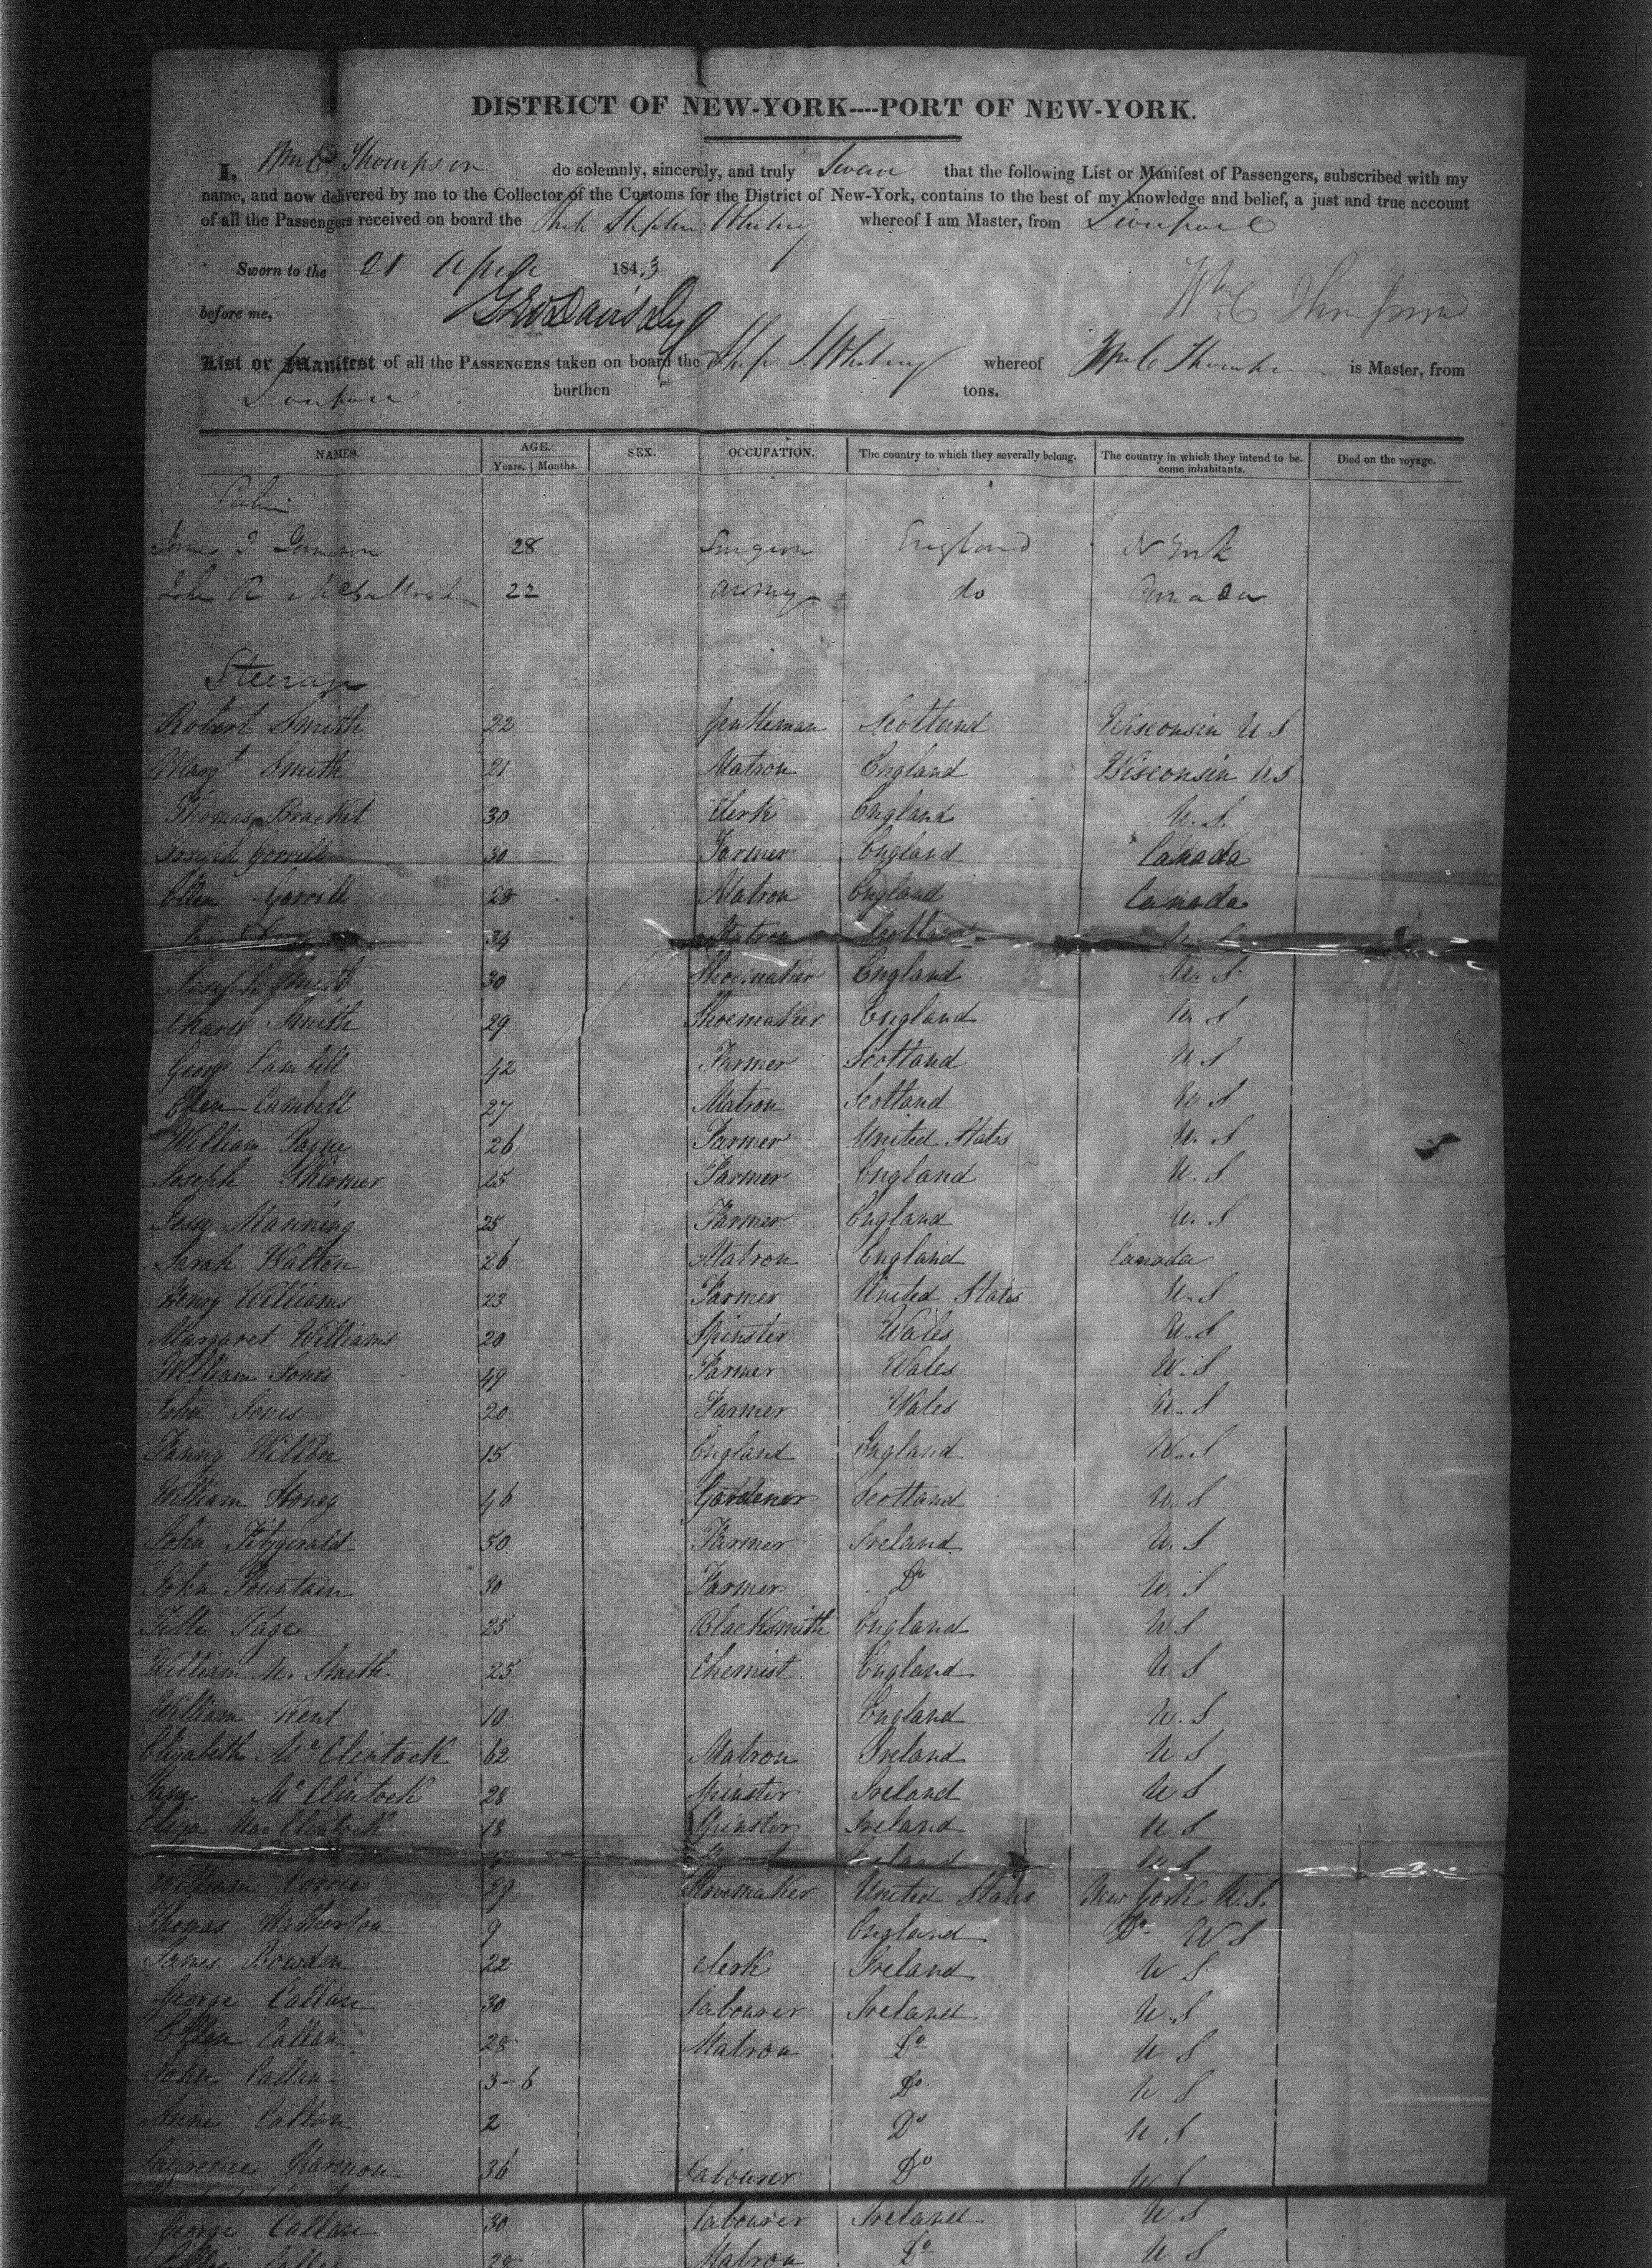 DISTRICT OF NEW-YORK----PORT OF NEW-YORK.
I, Wm C Thompson do solemnly, sincerely, and truly Swear that the following List or Manifest of Passengers, subscribed with my
name, and now delivered by me to the Collector of the Customs for the District of New-York, contains to the best of my knowledge and belief, a just and true account
of all the Passengers received on board the Ship Stephen Whitney whereof I am Master, from Liverpool
Sworn to the 21 April 1843
before me, Wm C Thompson
List or Manifest of all the PASSENGERS taken on board the Ship S. Whitney whereof Wm C Thompson is Master, from
Liverpool burthen tons.
NAMES. AGE. SEX. OCCUPATION. The country to which they severally belong. The country in which they intend to be- Died on the voyage.
Years. | Months. come inhabitants.
Cabin
James 28 Surgeon England N York
John R 22 army do Canada
Steerage
Robert Smith 22 Gentleman Scotland Wisconsin U S
Margt Smith 21 Matron England Wisconsin U S
Thomas Bracket 30 Clerk England U. S.
Joseph Gorrill 30 Farmer England Canada
Ellen Gorrill 28 Matron England Canada
34 Matron Scotland U S
Joseph Smith 30 Shoemaker England U. S
Charls Smith 29 Shoemaker England U S
George Cambell 42 Farmer Scotland U S
Elen Cambell 27 Matron Scotland U S
William Payne 26 Farmer United States U. S
Joseph Skirmer 25 Farmer England U. S
Jessy Manning 25 Farmer England U. S
Sarah Walton 26 Matron England Canada
Henry Williams 23 Farmer United States U. S
Margaret Williams 20 Spinster Wales U. S
William Jones 49 Farmer Wales U. S
John Jones 20 Farmer Wales U. S
Fanny Willbee 15 England England U. S
William Honey 46 Gardener Scotland U. S
John Fitzgerald 50 Farmer Ireland U. S
John Fountain 30 Farmer Do U. S
Page 25 Blacksmith England U S
William M. Smith 25 Chemist England U S
William Kent 10 England U. S
Elizabeth Mc Clintock 62 Matron Ireland U S
Jane Mc Clintock 28 Spinster Ireland U S
Eliza MacClintock 18 Spinster Ireland U S
Ireland U S
William Corrie 29 Shoemaker United States New York U. S.
Thomas Hatherton 9 England Do U S
James Bowden 22 Clerk Ireland U S
George Callan 30 Labourer Ireland U. S
Ellen Callan 28 Matron Do U S
John Callan 3-6 Do U S
Anne Callan 2 Do U S
Laurence Harmon 36 Labourer Do U S
George Callan 30 Labourer Ireland U S
Ellen Callan 28 Matron Do U S